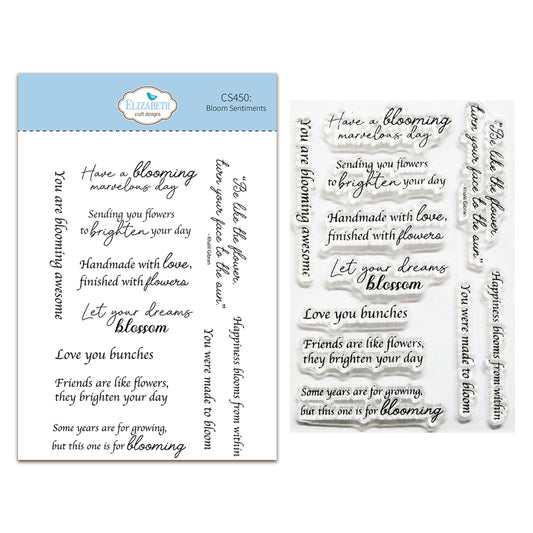 ELIZABETH
craft designs
CS450:
Bloom Sentiments
You are blooming awesome
Have a blooming
marvelous day
Sending you flowers
to brighten your day
Handmade with love,
finished with flowers
Let your dreams
blossom
Love you bunches
Friends are like flowers,
they brighten your day
Some years are for growing,
but this one is for blooming
"Be like the flower,
turn your face to the sun."
- Khalil Gibran
Happiness blooms from within
You were made to bloom
You are blooming awesome
Have a blooming
marvelous day
Sending you flowers
to brighten your day
Handmade with love,
finished with flowers
Let your dreams
blossom
Love you bunches
Friends are like flowers,
they brighten your day
Some years are for growing,
but this one is for blooming
"Be like the flower,
turn your face to the sun."
- Khalil Gibran
Happiness blooms from within
You were made to bloom